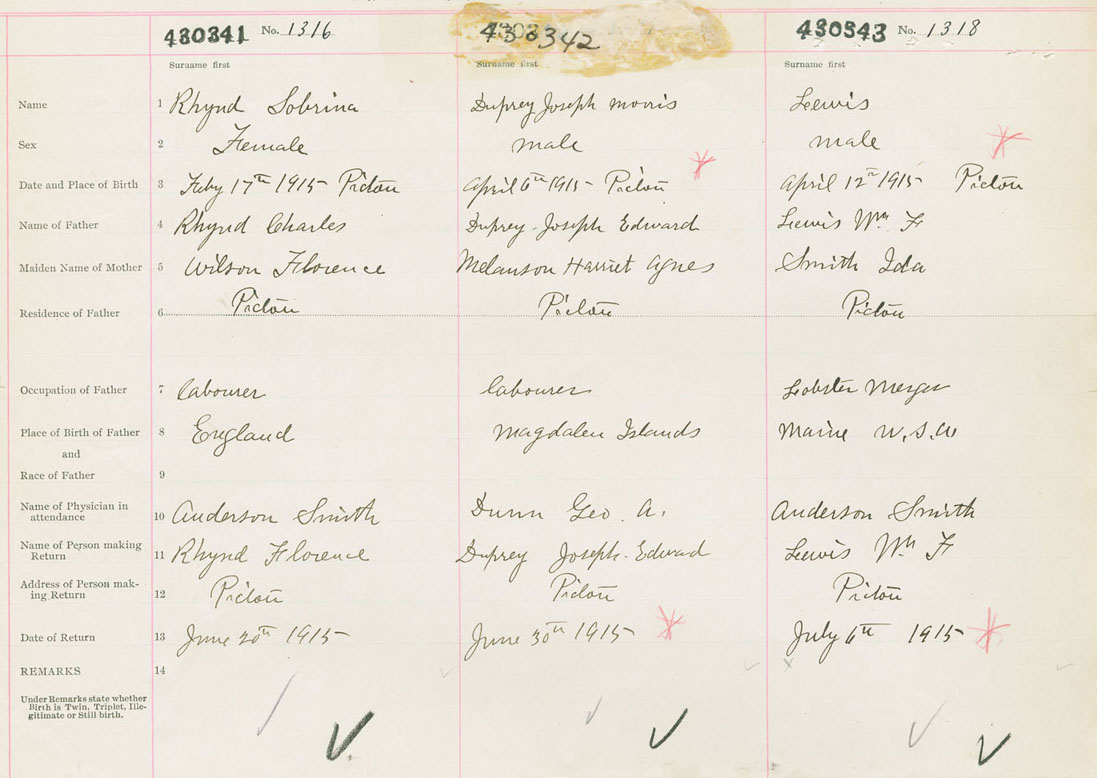 430341 No. 1316 430342 430343 No. 1318
Surname first Surname first Surname first
Name 1 Rhynd Sobrina Duprey Joseph Morris Leewis
Sex 2 Female male male
Date and Place of Birth 3 Feby 17th 1915 Pictou April 6th 1915 Pictou April 12th 1915 Pictou
Name of Father 4 Rhynd Charles Duprey Joseph Edward Leewis Wm F
Maiden Name of Mother 5 Wilson Florence Melanson Harriet Agnes Smith Ida
Residence of Father 6 Pictou Pictou Pictou
Occupation of Father 7 Labourer Labourer Lobster
Place of Birth of Father 8 England Magdalen Islands Maine U.S.A
and
Race of Father 9
Name of Physician in
attendance 10 Anderson Smith Dunn Geo. A. Anderson Smith
Name of Person making
Return 11 Rhynd Florence Duprey Joseph Edward Leewis Wm F
Address of Person mak-
ing Return 12 Pictou Pictou Pictou
Date of Return 13 June 20th 1915 June 30th 1915 July 6th 1915
REMARKS 14
Under Remarks state whether
Birth is Twin, Triplet, Ille-
gitimate or Still birth.